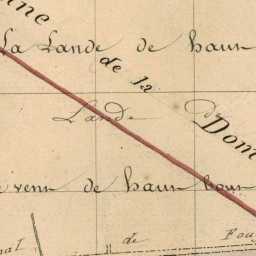 La Lande de haun
de la
Lande
Dom
venn de haun bour
de Fou